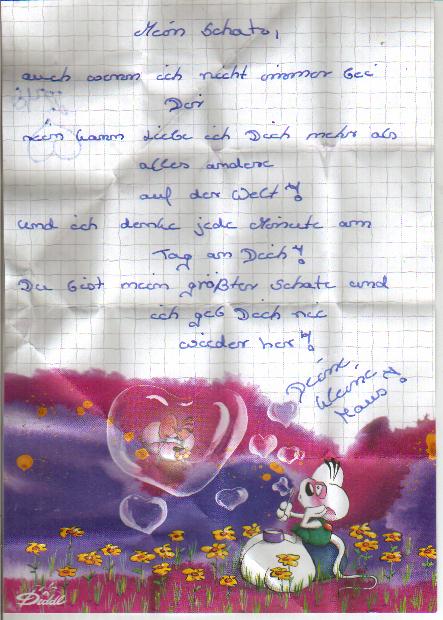 Mein Schatz,
auch wenn ich nicht immer bei
Dir
sein kann liebe ich Dich mehr als
alles andere
auf der Welt!
und ich denke jede Minute am
Tag an Dich!
Du bist mein größter Schatz und
ich geb Dich nie
wieder her!
Deine
kleine
Maus!
Diddl